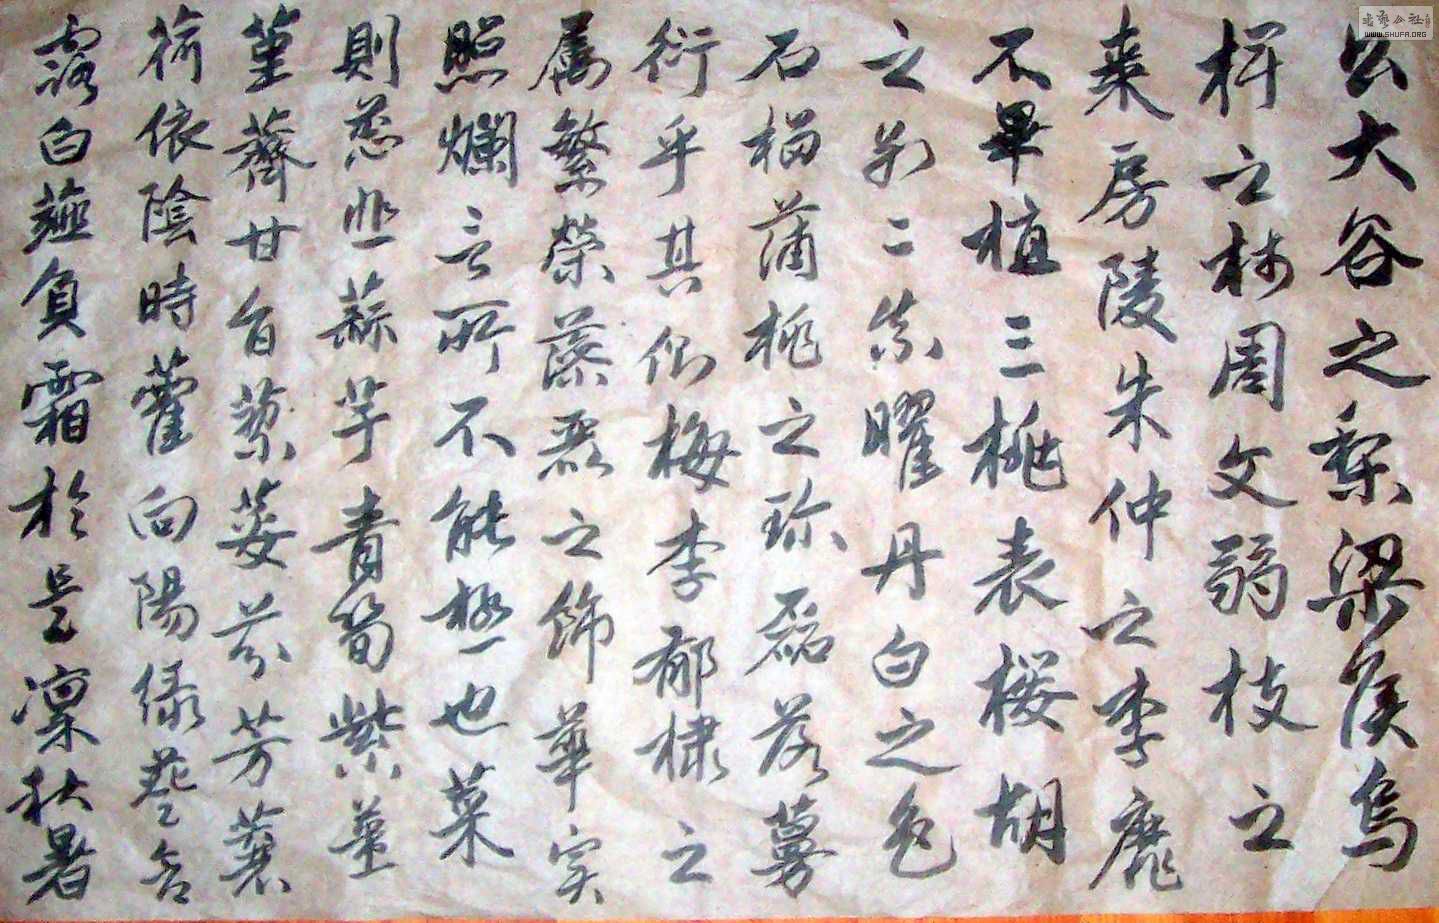 公大谷之梨梁侯烏
椑之柿周文弱枝之
棗房陵朱仲之李靡
不畢植三桃表櫻胡
之别二柰曜丹白之色
石榴蒲桃之珍磊落蔓
衍乎其側梅李郁棣之
屬繁榮藻麗之飾華实
照爛言所不能極也菜
則葱韭蒜芋青筍紫薑
堇薺甘旨蓼荽芬芳蘘
荷依陰時藿向陽緑葵含
露白薤負霜於是凜秋暑
WWW.SHUFA.ORG